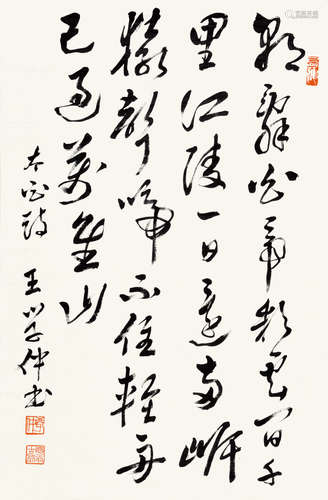 朝辭白帝彩雲間千
里江陵一日還兩岸
猿聲啼不住輕舟
已過萬重山
太白詩
王學仲書